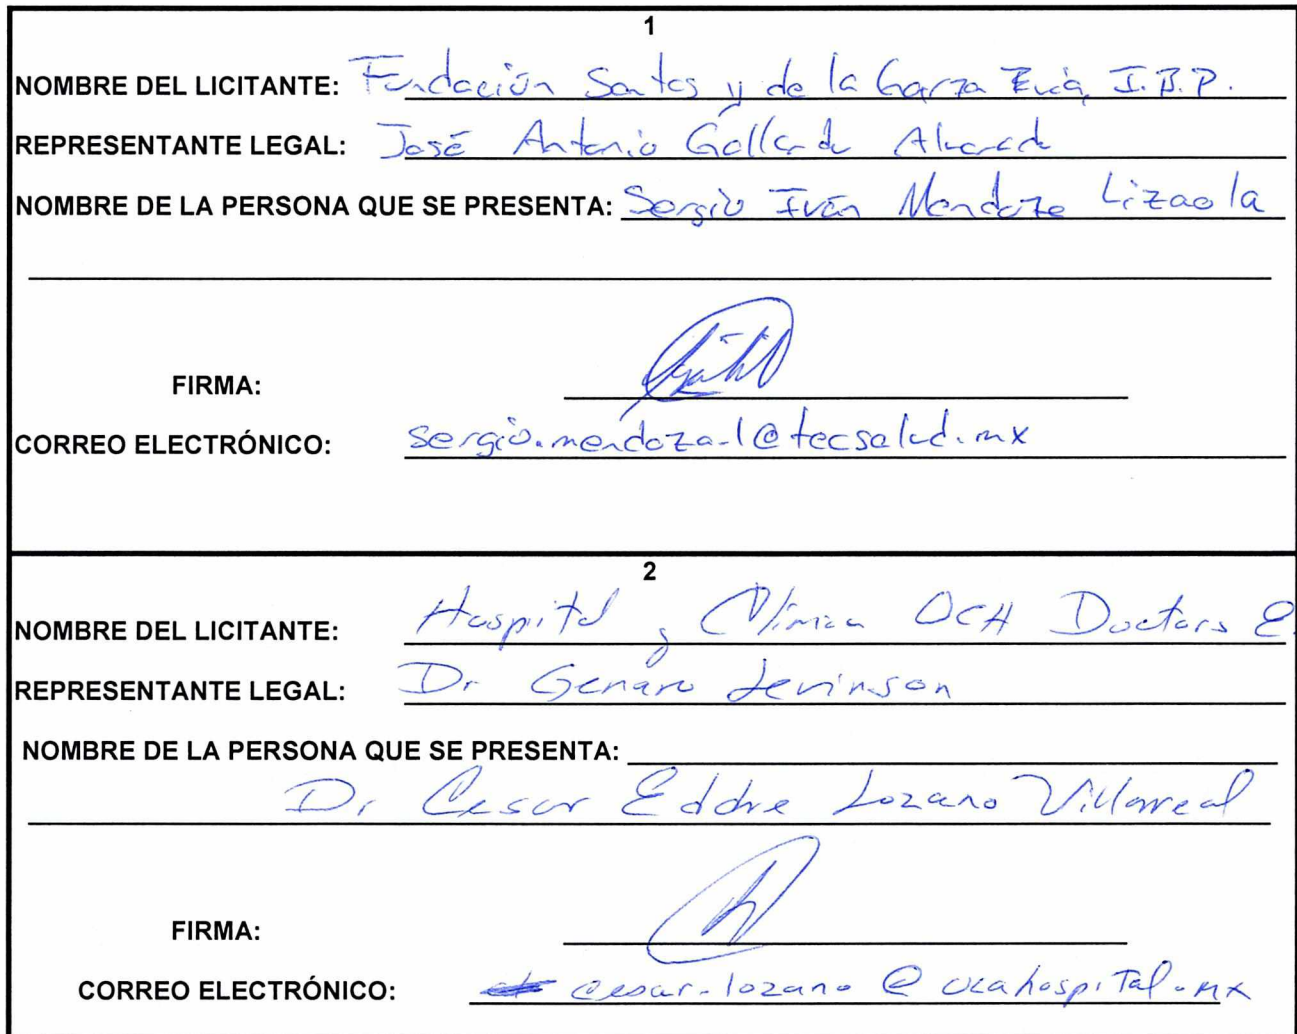 1
NOMBRE DEL LICITANTE: Fundación Santos y de la Garza Evia, I.B.P.
REPRESENTANTE LEGAL: José Antonio Gallardo Alvarado
NOMBRE DE LA PERSONA QUE SE PRESENTA: Sergio Iván Mendoza Lizaola
FIRMA:
CORREO ELECTRÓNICO: sergio.mendoza-l@tecsalud.mx
2
NOMBRE DEL LICITANTE: Hospital y Clínica OCA Doctors
REPRESENTANTE LEGAL: Dr Genaro Levinson
NOMBRE DE LA PERSONA QUE SE PRESENTA:
Dr Cesar Lozano Villarreal
FIRMA:
CORREO ELECTRÓNICO: cesar-lozano @ ocahospital.mx